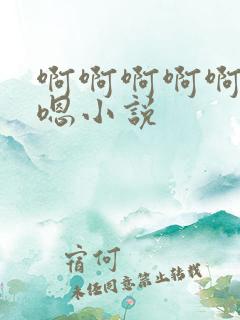 啊啊啊啊啊
嗯小说
宿何
未经同意禁止转载